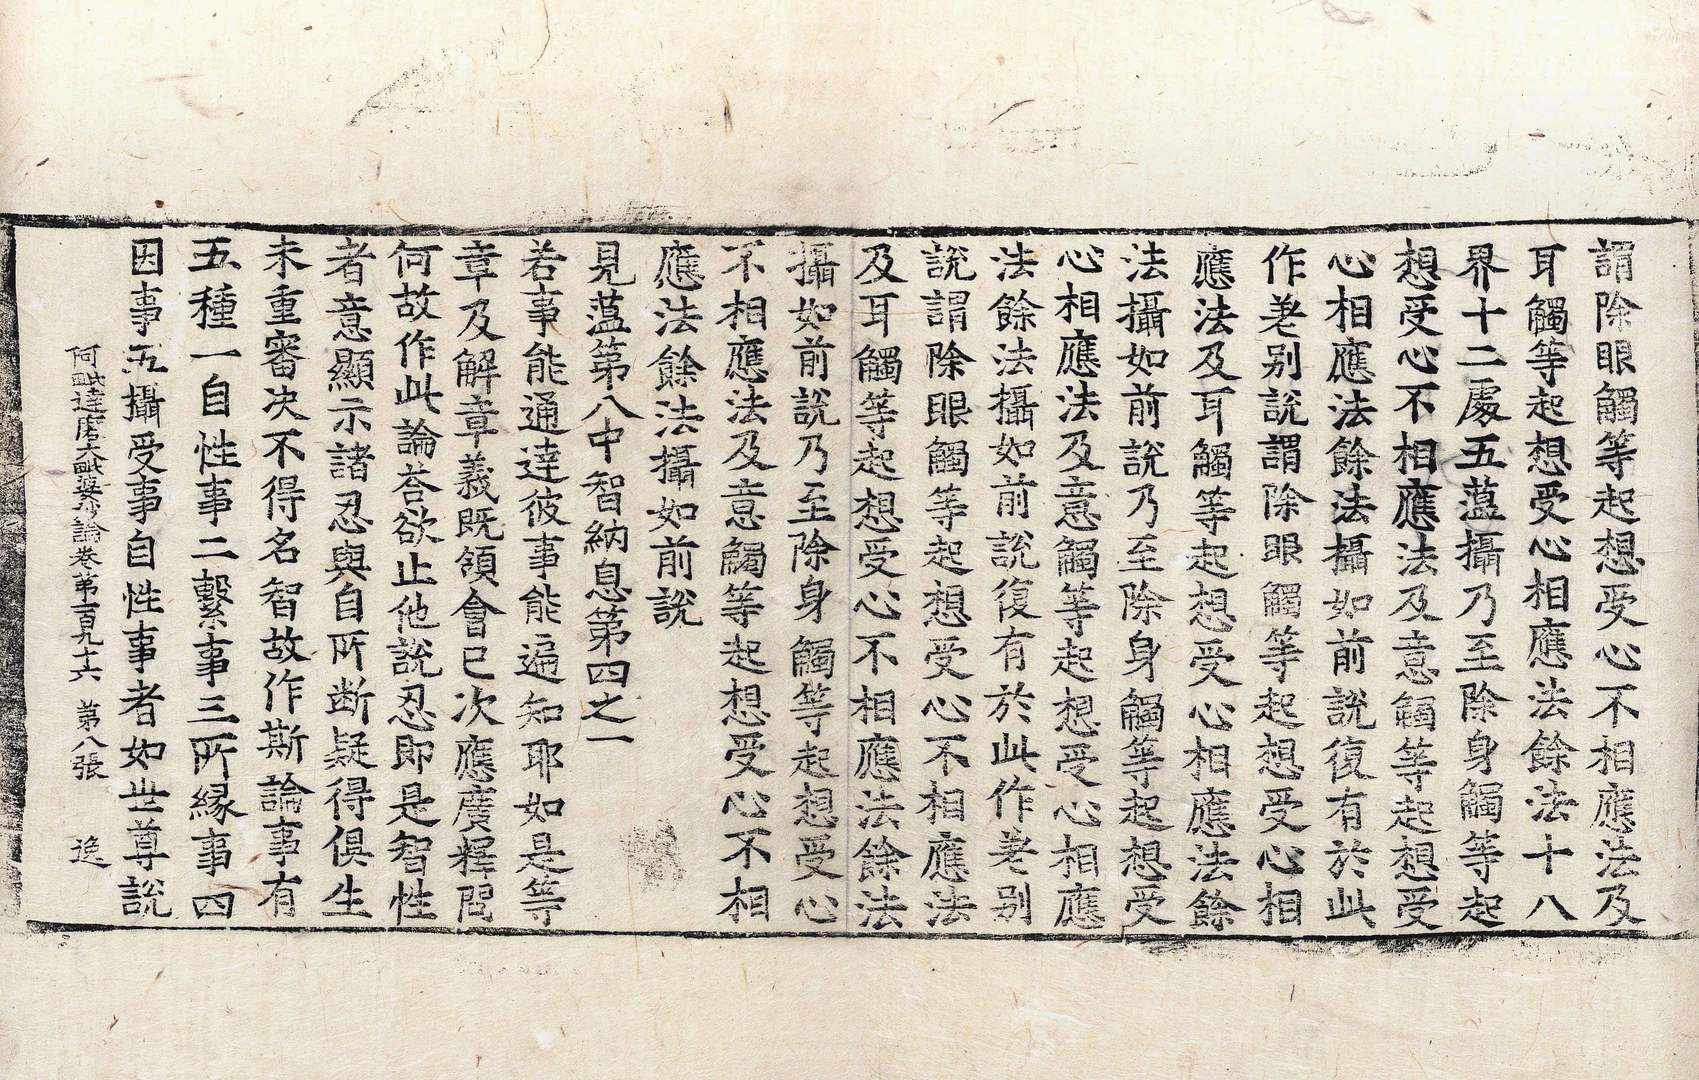 謂除眼觸等起想受心不相應法及
耳觸等起想受心相應法餘法十八
界十二處五蘊攝乃至除身觸等起
想受心不相應法及意觸等起想受
心相應法餘法攝如前說復有於此
作差別說謂除眼觸等起想受心相
應法及耳觸等起想受心相應法餘
法攝如前說乃至除身觸等起想受
心相應法及意觸等起想受心相應
法餘法攝如前說復有於此作差別
說謂除眼觸等起想受心不相應法
及耳觸等起想受心不相應法餘法
攝如前說乃至除身觸等起想受心
不相應法及意觸等起想受心不相
應法餘法攝如前說
見蘊第八中智納息第四之一
若事能通達彼事能遍知耶如是等
章及解章義旣領會已次應廣釋問
何故作此論荅欲止他說忍卽是智性
者意顯示諸忍與自所斷疑得俱生
未重審決不得名智故作斯論事有
五種一自性事二繫事三所緣事四
因事五攝受事自性事者如世尊說
阿毗達磨大毗婆沙論卷第一百九十六 第八張 逸